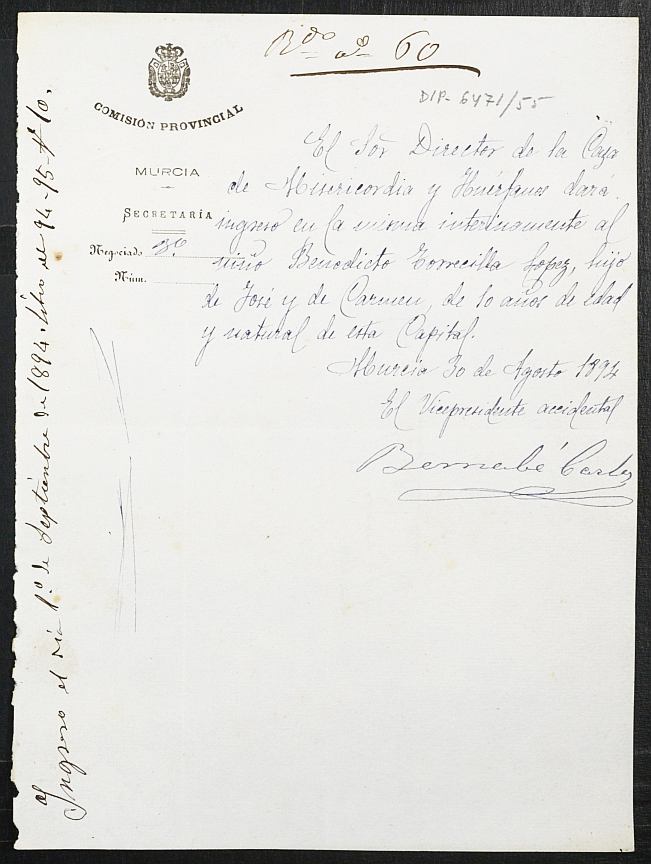 Rdo nº 60
DIP-6471/55
COMISIÓN PROVINCIAL
MURCIA
SECRETARÍA
Negociado 3º
Núm.
El Sor Director de la Casa
de Misericordia y Huérfanos dará
ingreso en la misma interinamente al
niño Benedicto Torrecilla Lopez, hijo
de José y de Carmen, de 10 años de edad
y natural de esta Capital.
Murcia 30 de Agosto 1894
El Vicepresidente accidental
Bernabé
Ingreso el dia 1.º de Septiembre de 1894. Libro de 94-95 - fº 10.